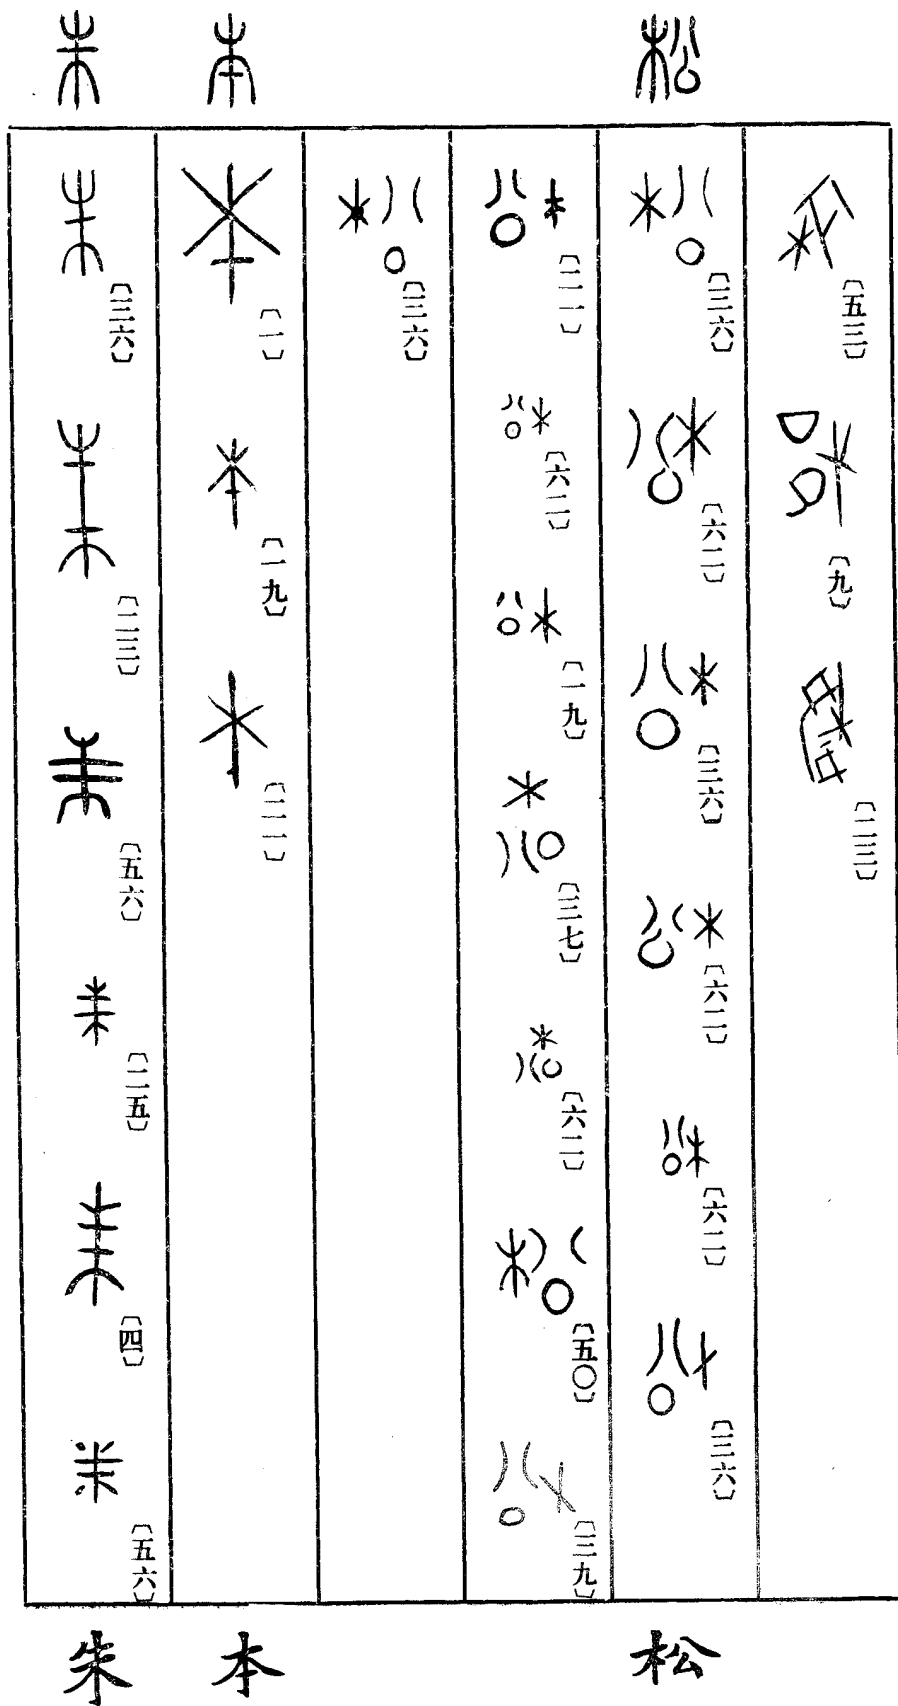 松
〔五三〕
〔九〕
〔二三〕
〔三六〕
〔六二〕
〔三六〕
〔六二〕
〔六二〕
〔三六〕
〔二一〕
〔六二〕
〔一九〕
〔三七〕
〔六二〕
〔五〇〕
〔三九〕
〔三六〕
松
本
〔一〕
〔一九〕
〔二一〕
本
朱
〔三六〕
〔二三〕
〔五六〕
〔二五〕
〔四〕
〔五六〕
朱